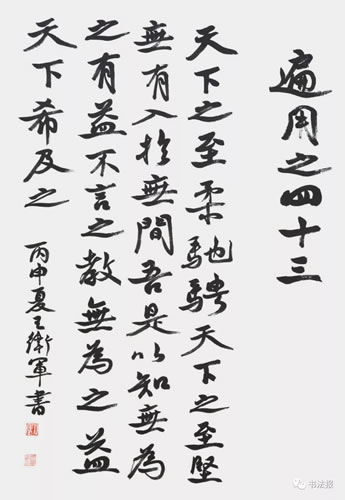 遍用之四十三
天下之至柔馳騁天下之至堅
無有入於無間吾是以知無為
之有益不言之教無為之益
天下希及之
丙申夏王衛軍書
书法报